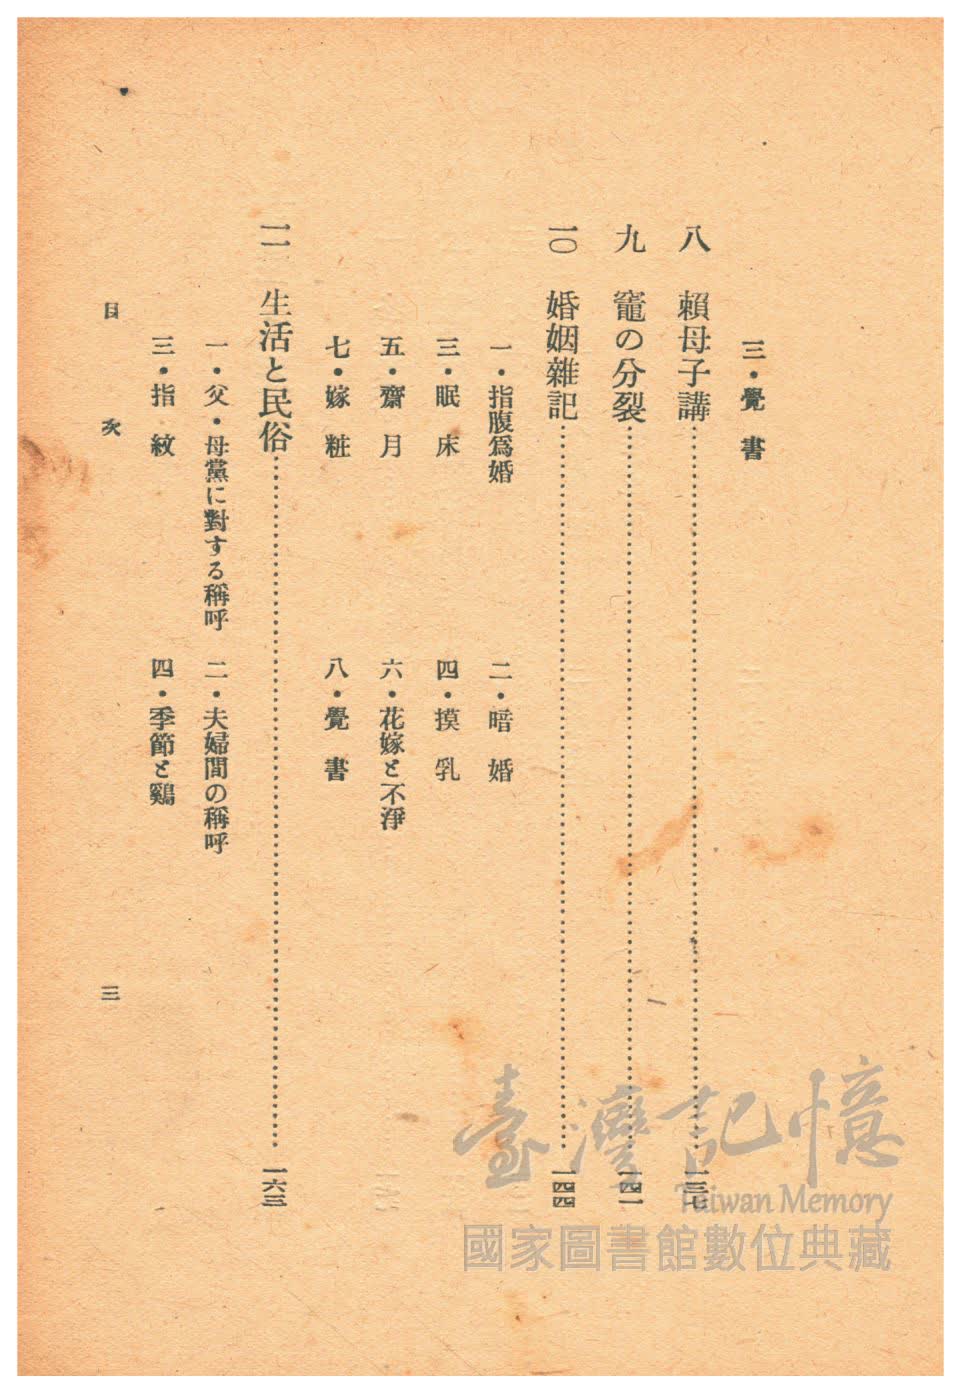 三・覺書
八 賴母子講…………一三七
九 竈の分裂…………一四一
一〇 婚姻雜記…………一四四
一・指腹爲婚 二・暗婚
三・眠床 四・摸乳
五・齋月 六・花嫁と不淨
七・嫁粧 八・覺書
一一 生活と民俗…………一六三
一・父・母黨に對する稱呼 二・夫婦間の稱呼
三・指紋 四・季節と鷄
目次
三
臺灣記憶
Taiwan Memory
國家圖書館數位典藏